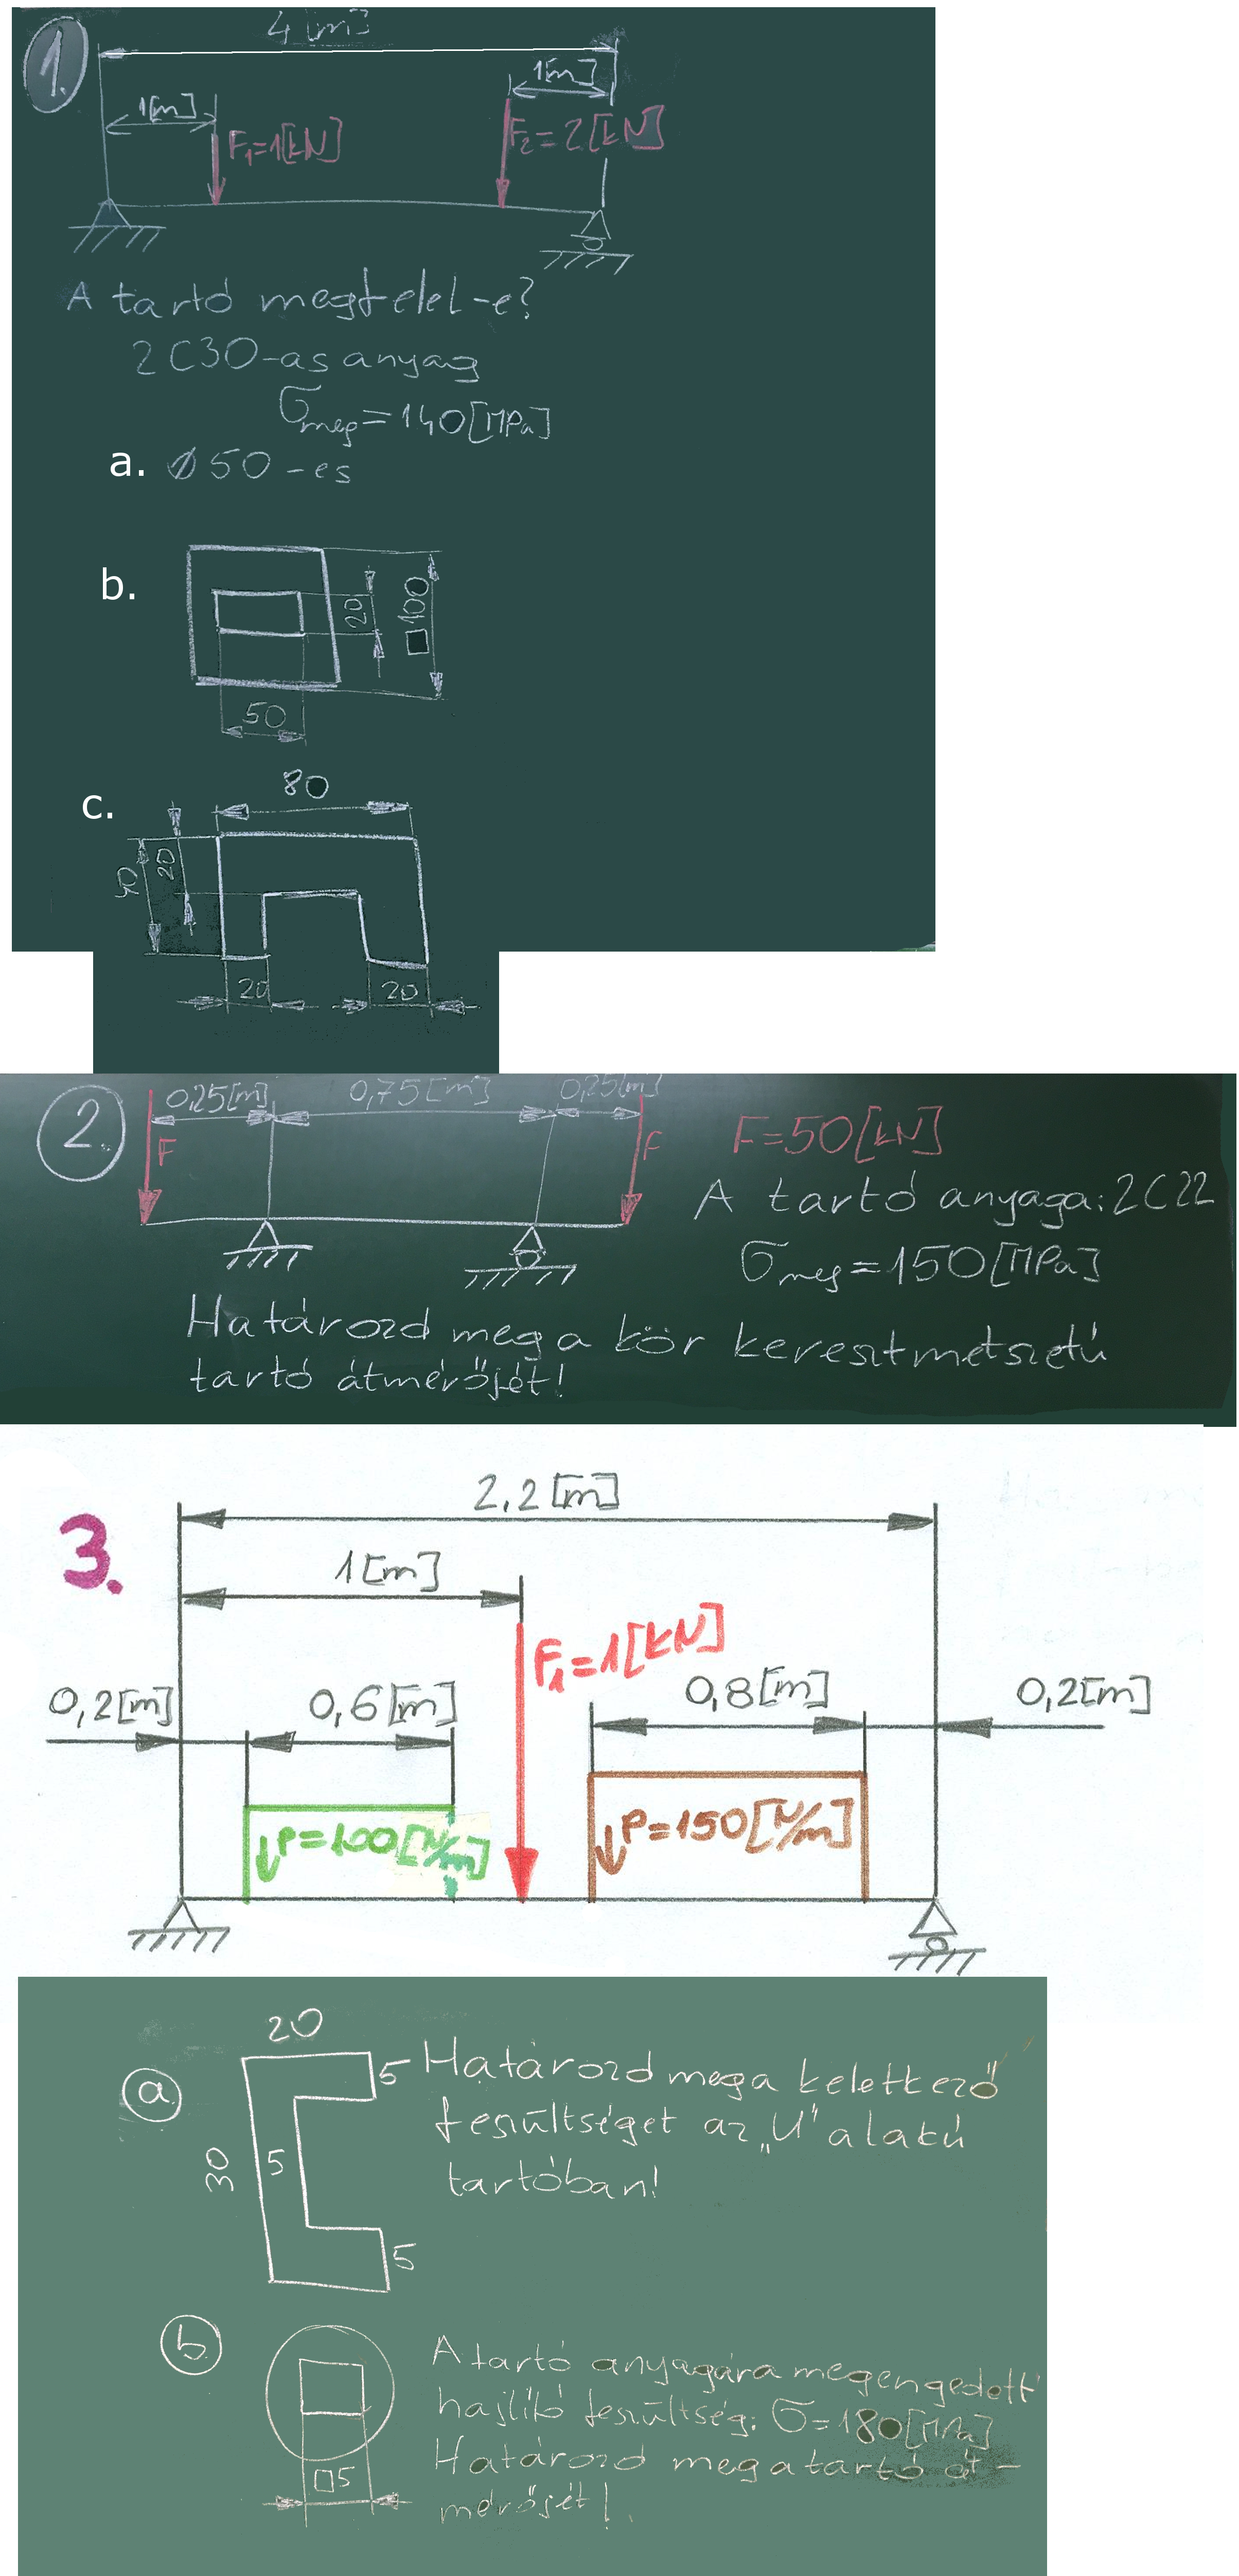 1.
4[m]
1[m]
1[m]
F₁=1[kN]
F₂=2[kN]
A tartó megfelel-e?
2C30-as anyag
σmeg=140[MPa]
a. ø50-es
b.
20
□100
50
c.
80
40
20
20
20
2.
0,25[m]
0,75[m]
0,25[m]
F
F
F=50[kN]
A tartó anyaga: 2C22
σmeg=150[MPa]
Határozd meg a kör keresztmetszetű
tartó átmérőjét!
3.
2,2[m]
1[m]
F₁=1[kN]
0,2[m]
0,6[m]
0,8[m]
0,2[m]
P=100[N/m]
P=150[N/m]
a
20
5
30
5
5
Határozd meg a keletkező
feszültséget az „U" alakú
tartóban!
b
□5
A tartó anyagára megengedett
hajlító feszültség: σ=180[MPa]
Határozd meg a tartó át-
mérőjét!